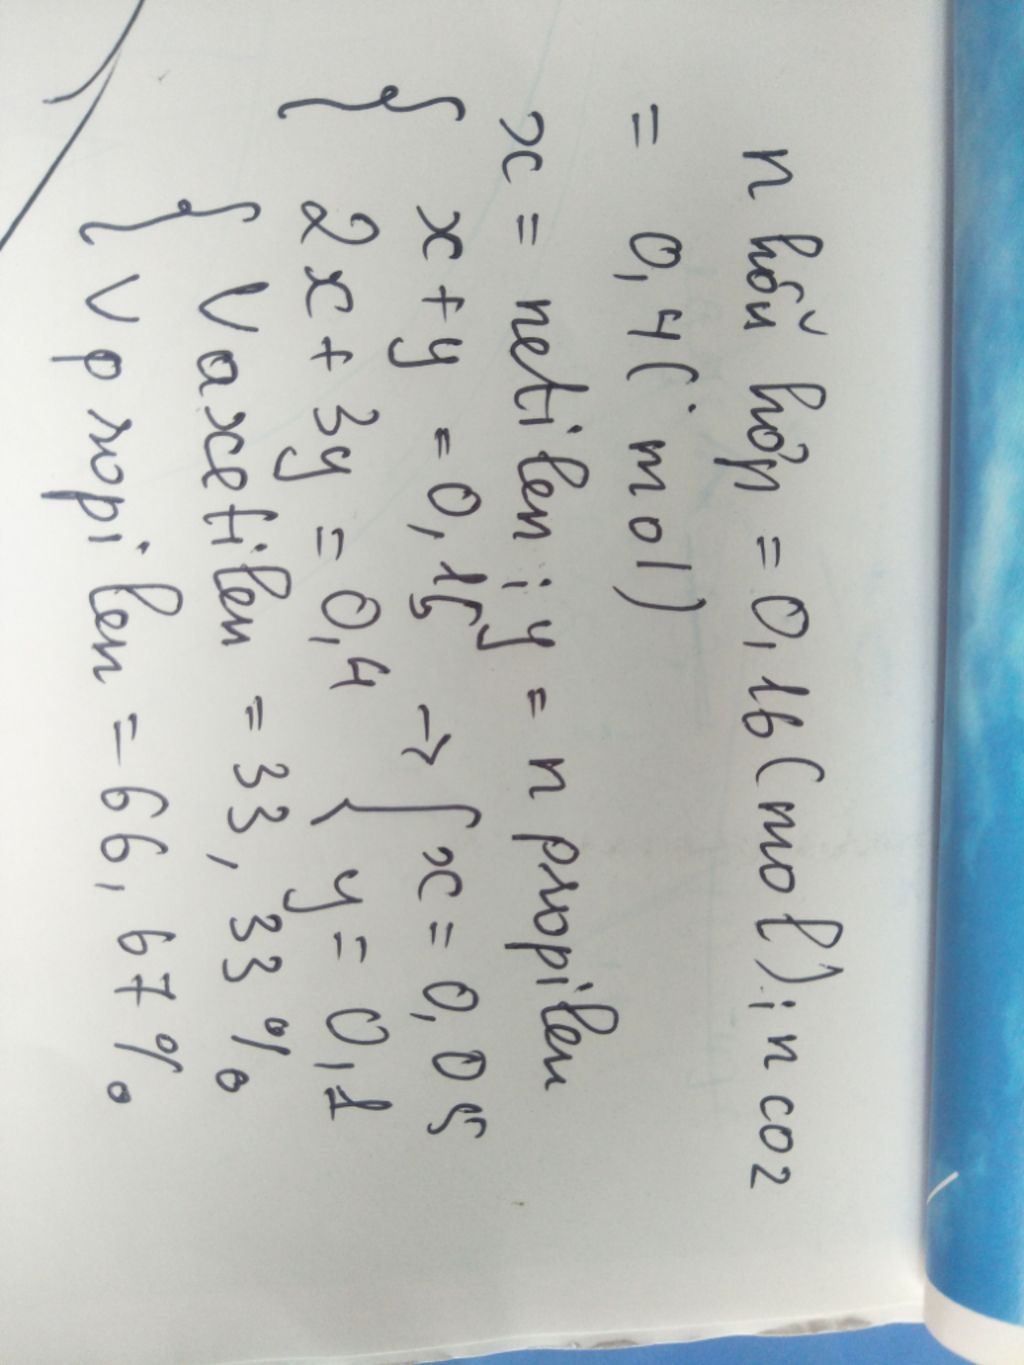 n hỗn hợp = 0,16(mol); n co2
= 0,4(mol)
x = netilen; y = n propilen
{ x + y = 0,15 → { x = 0,05
2x + 3y = 0,4 y = 0,1
{ V axetilen = 33,33%
V propilen = 66,67%